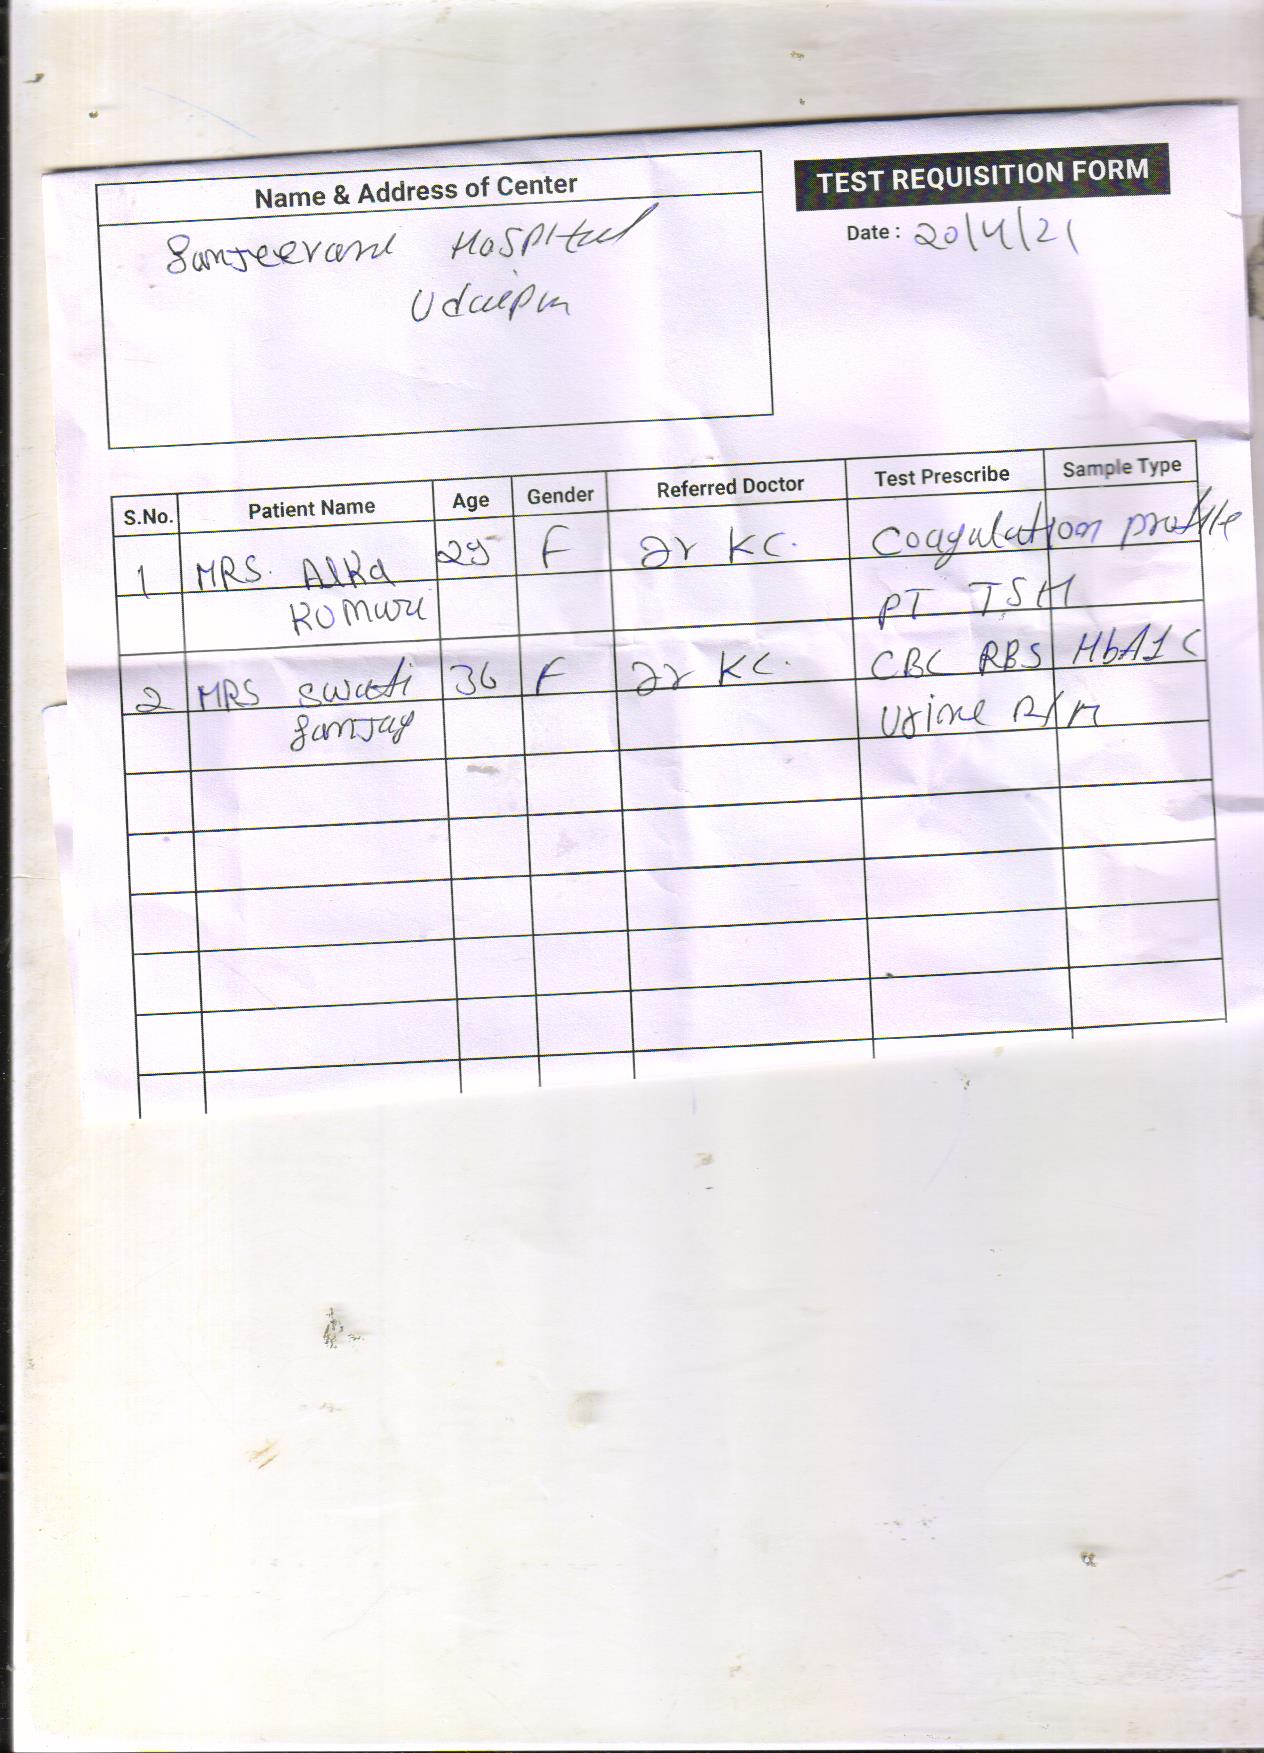 Name & Address of Center
TEST REQUISITION FORM
Sanjeevani Hospital
Date : 20/4/21
Udaipur
S.No. Patient Name Age Gender Referred Doctor Test Prescribe Sample Type
1 MRS. Alka 25 F Dr KC. Coagulation profile
Kumari PT TSH
2 MRS Swati 36 F Dr KC. CBC RBS HbA1C
Sanjay Urine R/M